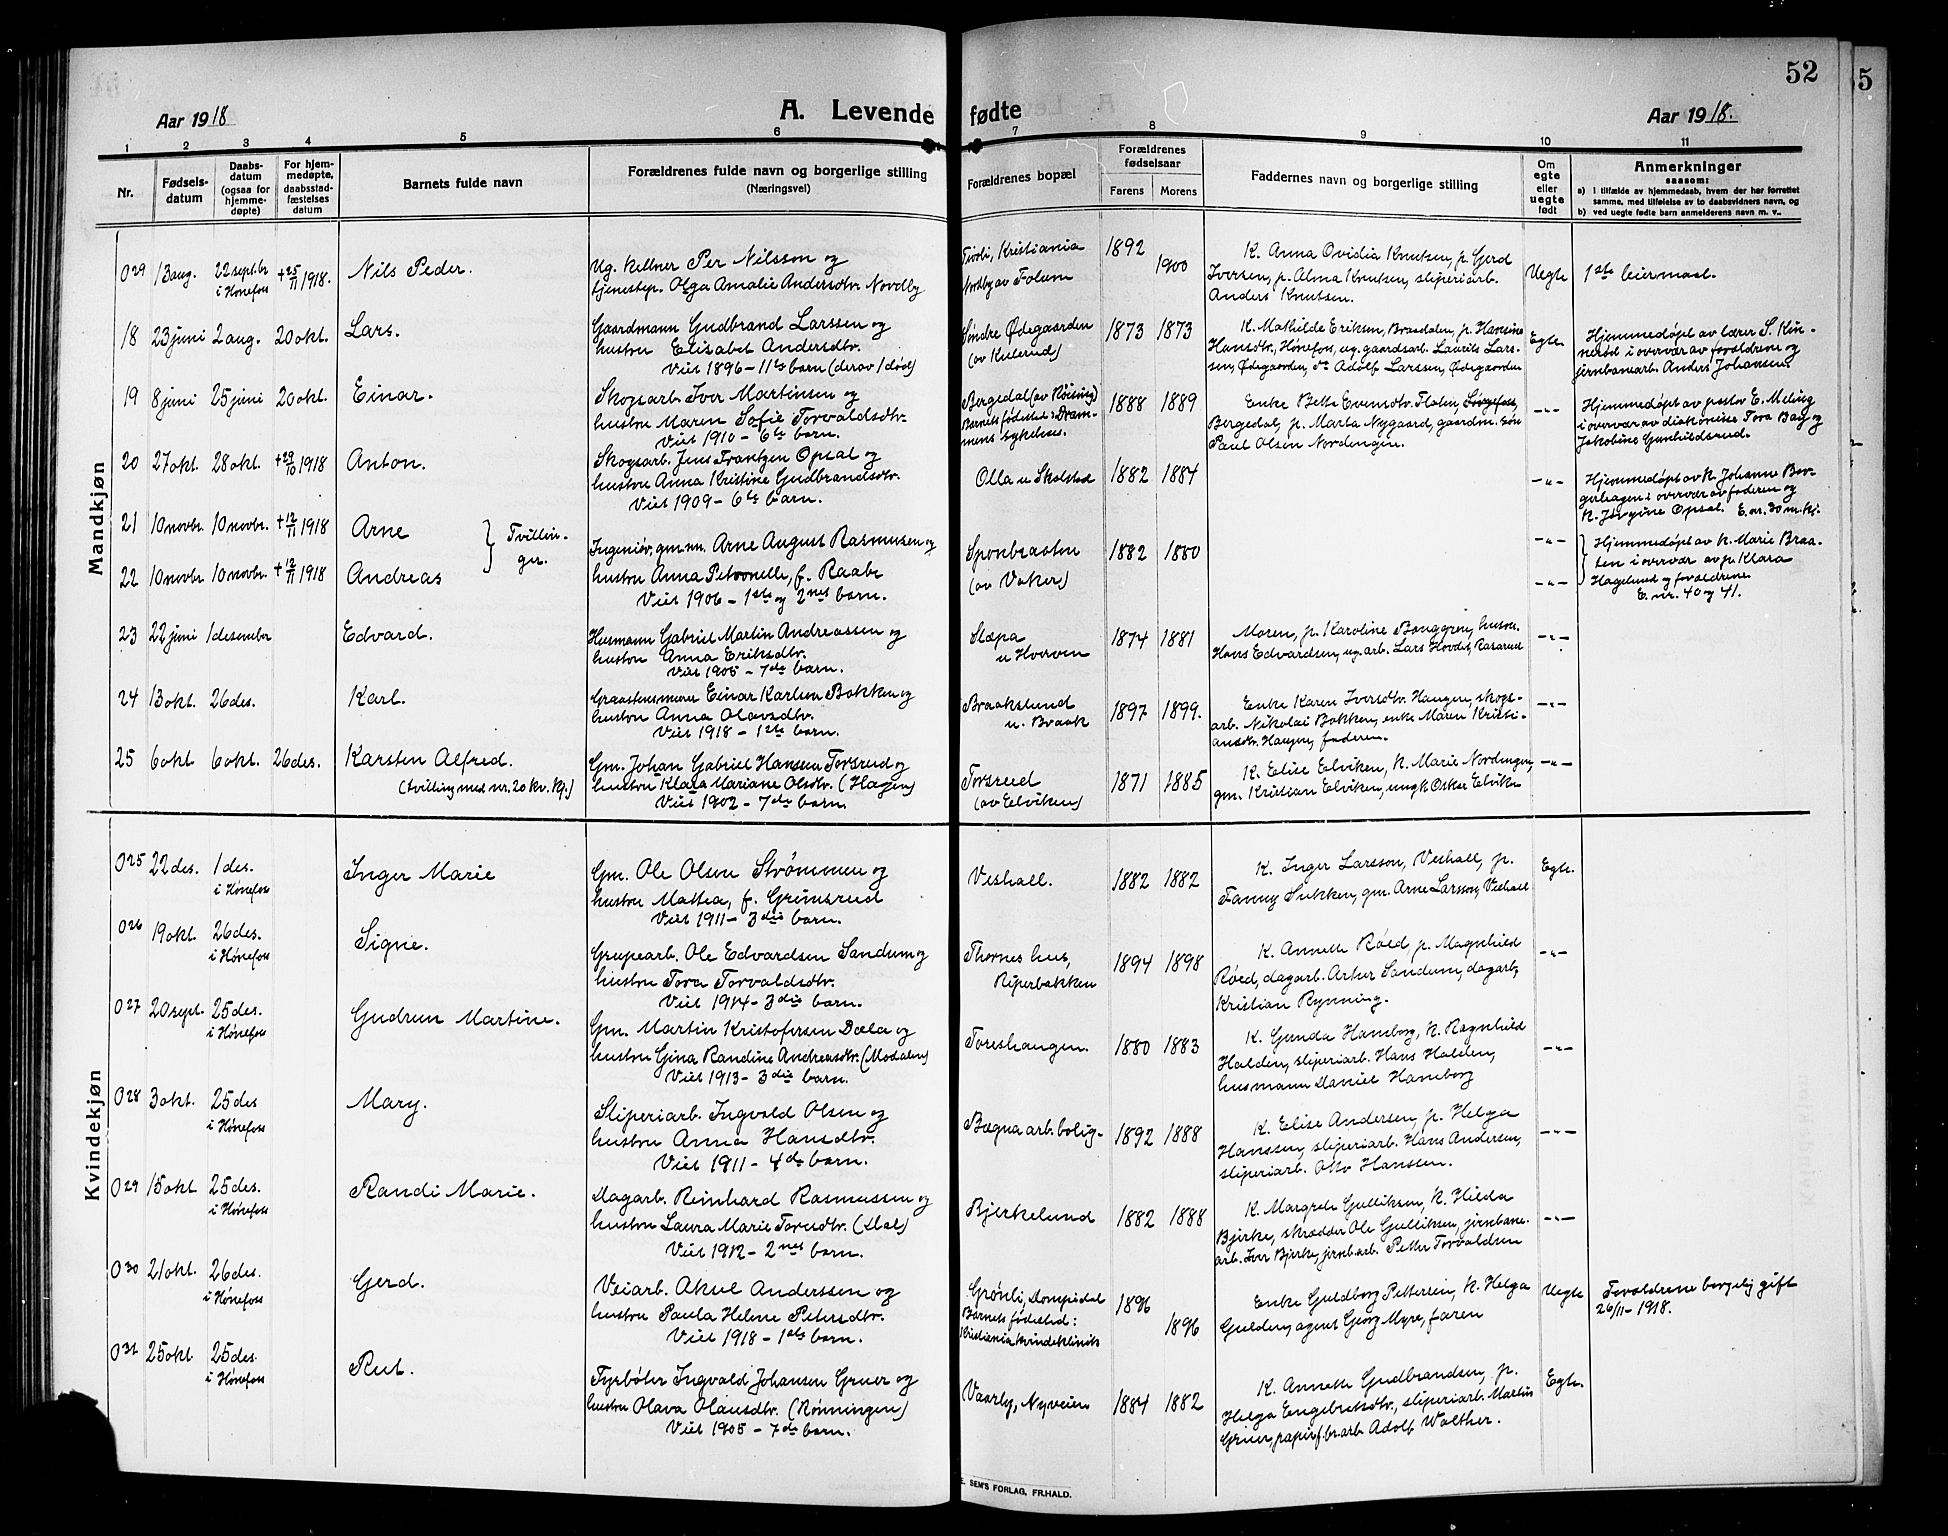 52
5
Aar 1918
A. Levende fødte
Aar 1918.
1 2 3 4 5 6 7 8 9 10 11
Nr.
Fødsels-
datum
Daabs-
datum
(ogsaa for
hjemme-
døpte)
For hjem-
medøpte,
daabsstad-
fæstelses
datum
Barnets fulde navn
Forældrenes fulde navn og borgerlige stilling
(Næringsvei)
Forældrenes bopæl
Forældrenes
fødselsaar
Farens Morens
Faddernes navn og borgerlige stilling
Om
egte
eller
uegte
født
Anmerkninger
saasom:
a) I tilfælde av hjemmedaab, hvem der har forrettet
samme, med tilføielse av to daabsvidners navn, og
b) ved uegte fødte barn anmelderens navn m. v..
Mandkjøn
029 13 aug. 22 septbr i Hønefoss + 25/11 1918. Nils Peder.
Ug. kellner Per Nilsson og
tjenestep. Olga Amalie Andersdtr. Nordby
Tivoli, Kristiania
Nordby av Folum
1892 1900
K. Anna Ovidia Knutsen, p. Gjerd
Iversen, p. Alma Knutsen, sliperiarb.
Anders Knutsen.
Uegte
1ste leiermaal.
18 23 juni 2 aug. 20 okt. Lars.
Gaardmann Gudbrand Larssen og
hustru Elisabet Andersdtr.
Viet 1896 - 11te barn (derav 1 død)
Søndre Ødegaarden
(av Kulerud)
1873 1873
K. Mathilde Eriksen, Braadalen, p. Hansine
Hansdtr., Hønefoss, ug. gaardsarb. Laurits Lars-
sen, Ødegaarden, do Adolf Larssen, Ødegaarden
Egte.
Hjemmedøpt av lærer S. Kin-
nerød i overvær av forældrene og
jernbanearb. Anders Johansen.
19 8 juni 25 juni 20 okt. Einar.
Skogsarb. Iver Martinsen og
hustru Maren Sofie Torvaldsdtr.
Viet 1910 - 6te barn.
Bergsdal (av Røising)
Barnets fødested: Dram-
mens sykehus.
1888 1889
Enke Bette Evensdtr. Flaten,
Bergsdal, p. Marta Nygaard, gaardm. søn
Paul Olsen Nordengen.
-"-
Hjemmedøpt av prestor E. Meling
i overvær av diakonisse Tora Bay og
Jakobine Gunhildsrud.
20 27 okt. 28 okt. + 29/10 1918 Anton.
Skogsarb. Jens Frantzen Opsal og
hustru Anna Kristine Gudbrandsdtr.
Viet 1909 - 6te barn.
Olla u Skolstad
1882 1884
-"-
Hjemmedøpt av k. Johanne Ber-
gerhagen i overvær av faderen og
k. Jørgine Opsal. E. nr. 30 m. kj.
21 10 novbr. 10 novbr. + 12/11 1918 Arne
Tvillin-
ger.
22 10 novbr. 10 novbr. + 12/11 1918 Andreas
Ingeniør, gm. mn. Arne August Rasmussen og
hustru Anna Petronelle, f. Raabe
Viet 1906 - 1ste og 2net barn.
Sponbraaten
(av Vaker)
1882 1880
-"-
-"-
Hjemmedøpt av k. Marie Braa-
ten i overvær av p. Klara
Hagelund og forældrene.
E. nr. 40 og 41.
23 22 juni 1 desember Edvard.
Husmann Gabriel Martin Andreassen og
hustru Anna Eriksdtr.
Viet 1905 - 7de barn.
Slæpa
u Hverven
1874 1881
Moren, p. Karoline Bonggren, husm.
Hans Edvardsen, ug. arb. Lars Hovde, Rasarud
-"-
24 13 okt. 26 des. Karl.
Graastensmurer Einar Karlsen Bakken og
hustru Anna Olavsdtr.
Viet 1918 - 1ste barn.
Braakslund
u. Braak
1897 1899.
Enke Karen Iversdtr. Haugen, skogs-
arb. Nikolai Bakken, enke Maren Kristi-
ansdtr. Haugen, faderen.
-"-
25 6 okt 6 okt. 26 des. Karsten Alfred.
(tvilling med nr. 20 kv. kj.)
Gm. Johan Gabriel Hansen Torsrud og
hustru Klara Mariane Olsdtr. (Hagen)
Viet 1902 - 7de barn.
Torsrud
(av Elviken)
1871 1885
K. Elise Elviken, k. Marie Nordengen,
gm. Kristian Elviken, ungk Oskar Elviken
-"-
Kvindekjøn
025 22 des. 1 des. i Hønefoss Inger Marie
Gm. Ole Olsen Strømmen og
hustru Mattea, f. Grimsrud
Viet 1911 - 3die barn.
Veshall.
1882 1882
K. Inger Larsson, Veshall, p.
Fanny Sukken, gm. Arne Larsson, Veshall
Egte.
026 19 okt. 26 des. i Hønefoss Signe.
Grubearb. Ole Edvardsen Sandum og
hustru Tora Torvaldsdtr.
Viet 1914 - 3die barn.
Thornes hus,
Riperbakken
1894 1898
K. Annette Røed, p. Magnhild
Røed, dagarb. Artur Sandum, dagarb,
Kristian Rynning.
-"-
027 20 sept. 25 des. i Hønefoss Gudrun Martine.
Gm. Martin Kristofersen Dæla og
hustru Gina Randine Andreasdtr. (Modalen)
Viet 1913 - 3die barn.
Toreshaugen.
1880 1883
K. Gunda Hamborg, k. Ragnhild
Halden, sliperiarb. Hans Halden,
husmann Daniel Hamborg
-"-
028 3 okt. 25 des i Hønefoss Mary.
Sliperiarb. Ingvald Olsen og
hustru Anna Hansdtr.
Viet 1911 - 4de barn.
Bægna arb. bolig-
1892 1888
K. Elise Andersen, p. Helga
Hanssen, sliperiarb. Hans Andersen,
sliperiarb. Otto Hanssen.
-"-
029 15 okt 25 des. i Hønefoss Randi Marie.
Dagarb. Reinhard Rasmussen og
hustru Laura Marie Toresdtr. (Dal)
Viet 1912 - 2net barn.
Bjerkelund
1882 1888
K. Margrete Gulliksen, k. Hilda
Bjirke, skrædder Ole Gulliksen, jernbane-
arb. Iver Bjirke, jernb.arb. Petter Torvaldsen
-"-
030 21 okt. 26 des. i Hønefoss Gerd.
Veiarb. Aksel Anderssen og
hustru Paula Helene Petersdtr.
Viet 1918 - 1ste barn.
Grønli, Dompidal
Barnets fødested:
Kristiania kvindeklinik
1896 1896
Enke Guldborg Pettersen, k. Helga
Gulden, agent Georg Myre, faren
Uegte
Forældrene borgelig gift
26/11 - 1918.
031 25 okt 25 des. i Hønefoss Rut.
Fyrbøter Ingvald Johansen Gruer og
hustru Olava Olausdtr. (Rønningen)
Viet 1905 - 7de barn.
Vaarby, Nyveien
1884 1882
K. Annette Gudbrandsen, p.
Helga Engebretsdtr., sliperiarb. Martin
Gruer, papirf.br.arb Adolf Walther.
Egte.
E. SEM'S FORLAG, FR.HALD.